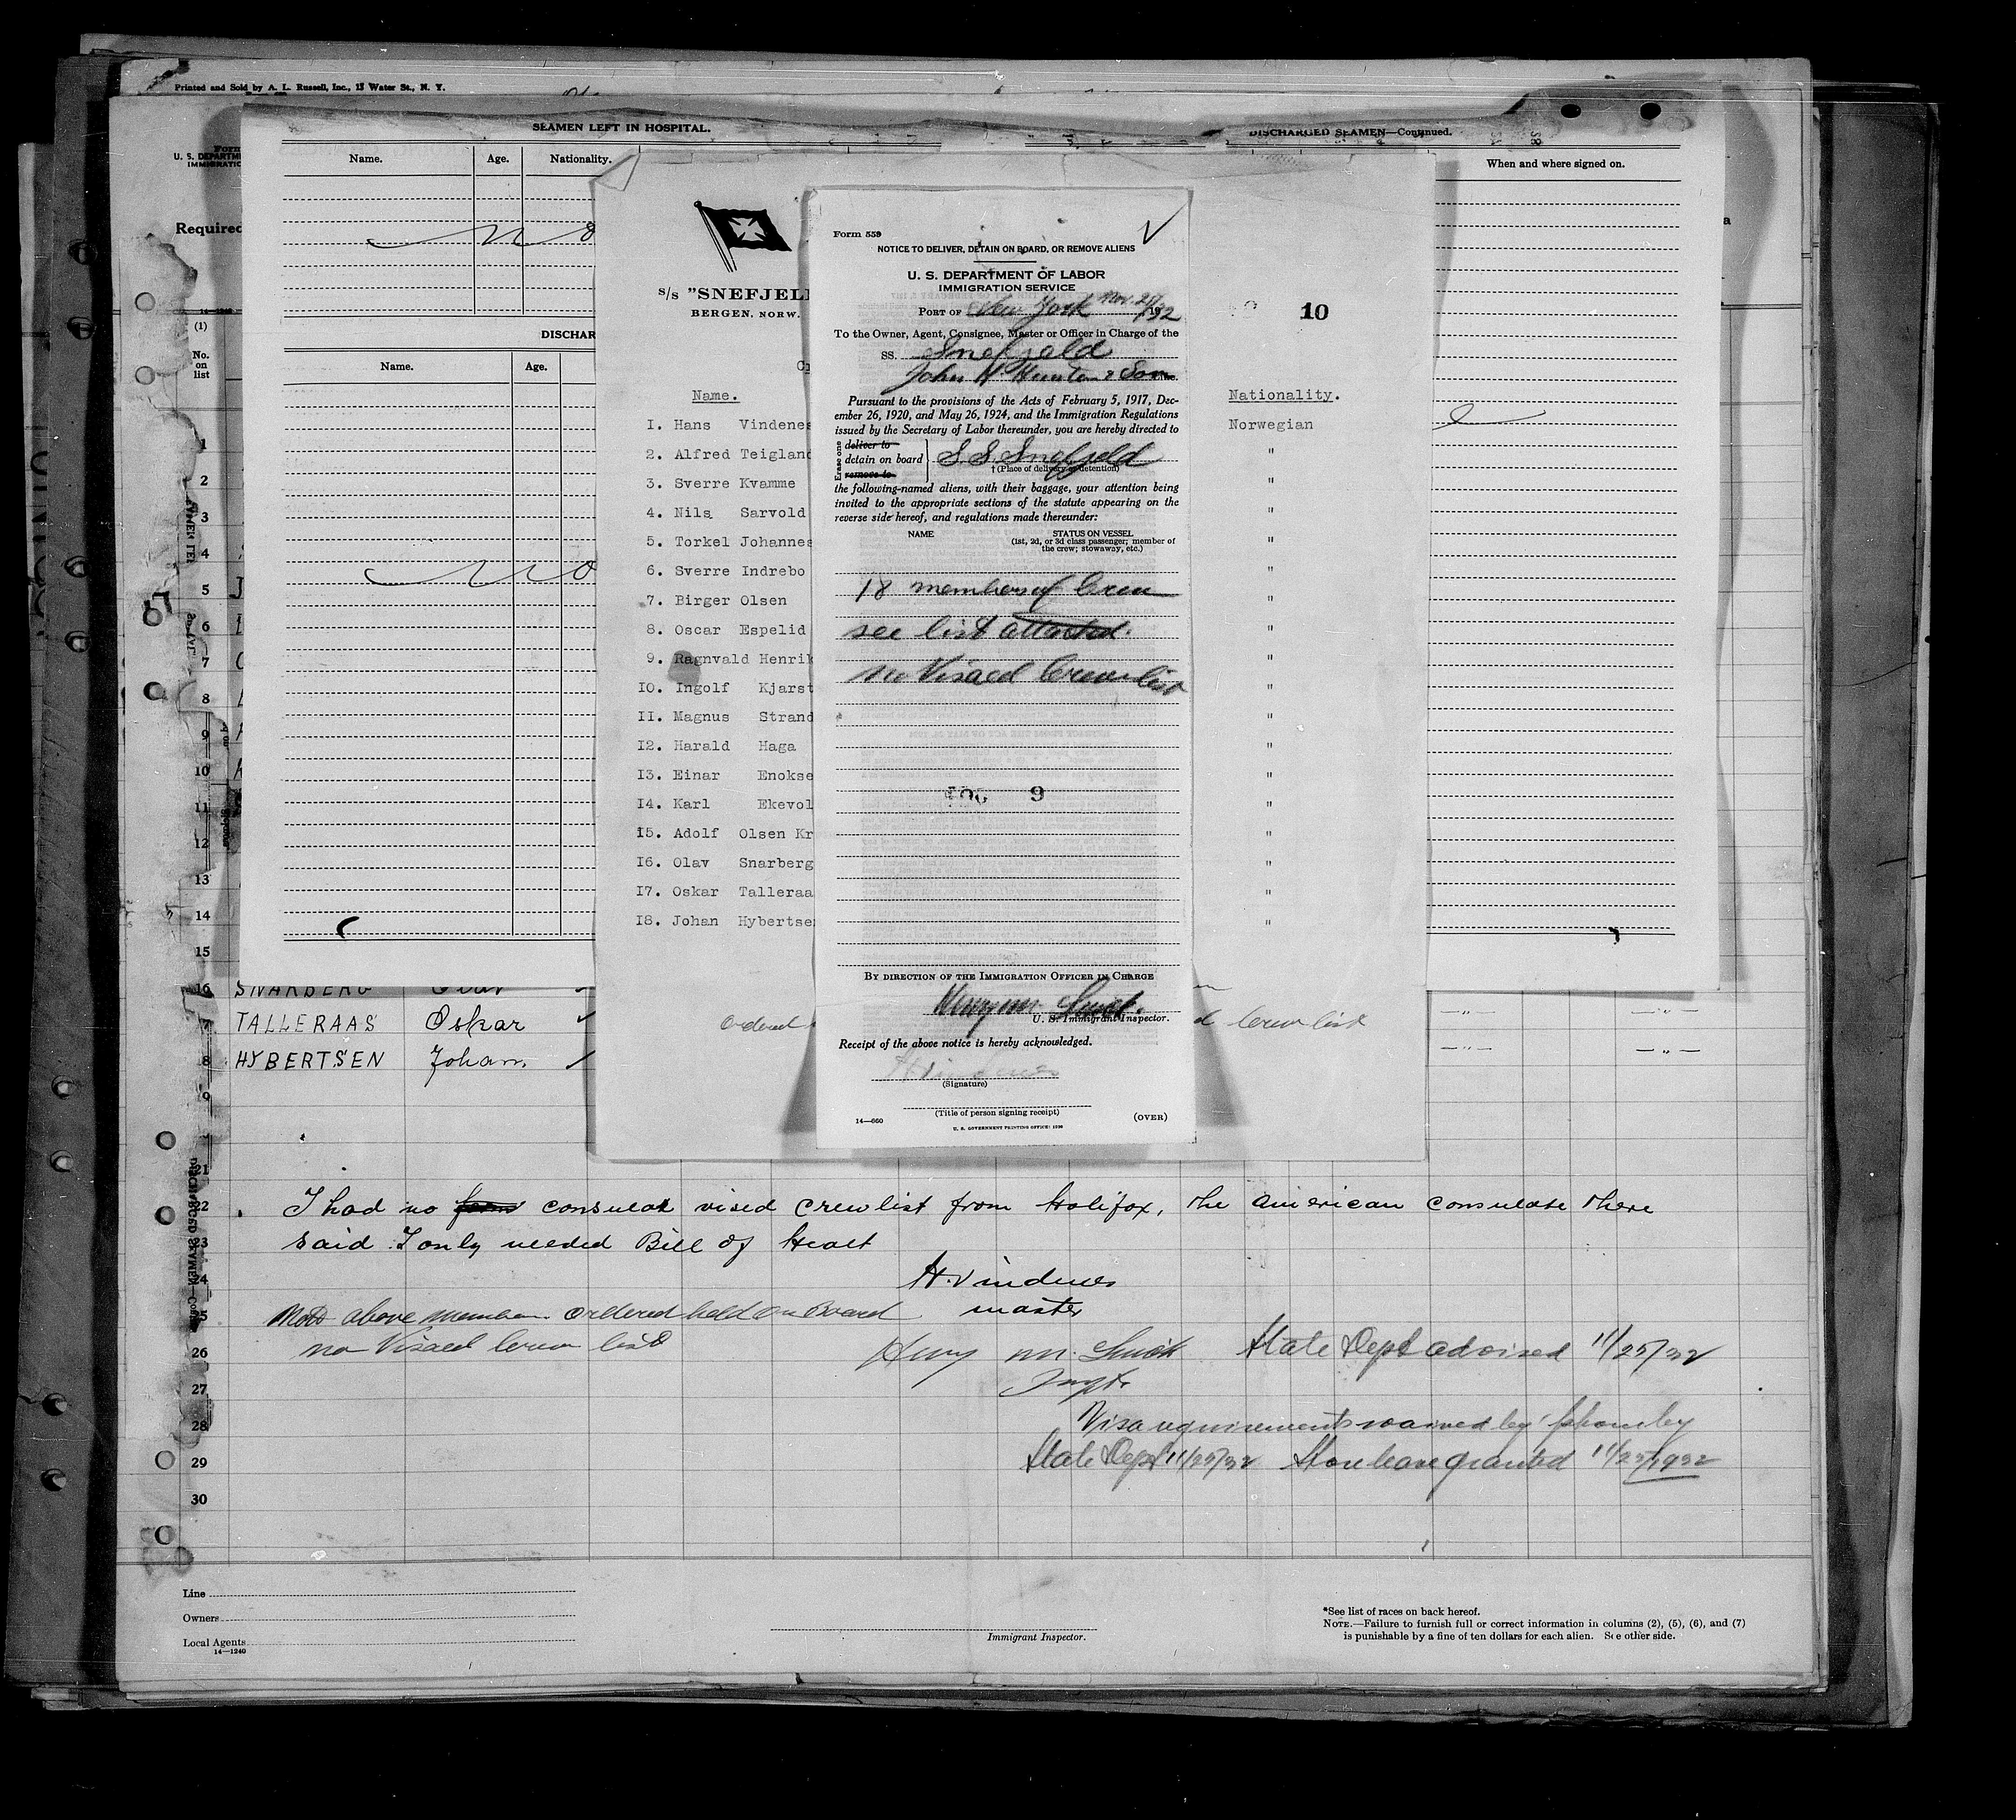 Printed and Sold by A. L. Russell, Inc., 13 Water St., N. Y.
Form
U. S. DEPARTM
IMMIGRATIO
Required
14—1240
(1)
No.
on
list
1
2
3
4
5
6
7
8
9
10
11
12
13
14
15
SEAMEN LEFT IN HOSPITAL.
Name. Age. Nationality.
No
DISCHAR
Name. Age.
No
DISCHARGED SEAMEN—Continued.
When and where signed on.
s/s "SNEFJEL
BERGEN. NORW.
10
Name. Nationality.
1. Hans Vindenes Norwegian
2. Alfred Teigland "
3. Sverre Kvamme "
4. Nils Sarvold "
5. Torkel Johannes "
6. Sverre Indrebo "
7. Birger Olsen "
8. Oscar Espelid "
9. Ragnvald Henrik "
10. Ingolf Kjarst "
11. Magnus Strand "
12. Harald Haga "
13. Einar Enokse "
14. Karl Ekevol "
15. Adolf Olsen Kr "
16. Olav Snarberg "
17. Oskar Talleraa "
18. Johan Hybertse "
ordered
d Crew list
Form 559
NOTICE TO DELIVER, DETAIN ON BOARD, OR REMOVE ALIENS
U. S. DEPARTMENT OF LABOR
IMMIGRATION SERVICE
PORT OF New York Nov. 21/32
To the Owner, Agent, Consignee, Master or Officer in Charge of the
SS. Snefjeld
John H. & Son
Pursuant to the provisions of the Acts of February 5, 1917, Dec-
ember 26, 1920, and May 26, 1924, and the Immigration Regulations
issued by the Secretary of Labor thereunder, you are hereby directed to
Erase one
deliver to
detain on board
remove to
S S Snefjeld
† (Place of delivery or detention)
the following-named aliens, with their baggage, your attention being
invited to the appropriate sections of the statute appearing on the
reverse side hereof, and regulations made thereunder:
NAME STATUS ON VESSEL
(1st, 2d, or 3d class passenger; member of
the crew; stowaway, etc.)
18 members of Crew
see list attached.
no Visaed Crew list
9
BY DIRECTION OF THE IMMIGRATION OFFICER IN CHARGE
Henry M.
U. S. Immigrant Inspector.
Receipt of the above notice is hereby acknowledged.
H. Vindenes
(Signature)
(Title of person signing receipt)
14—660 (OVER)
U. S. GOVERNMENT PRINTING OFFICE: 1930
16 SNARBERG Olav
7 TALLERAAS Oskar —"— —"—
8 HYBERTSEN Johan. —"— —"—
9
21
22 I had no form consular vised crewlist from Halifax, the american consulate there
23 said I only needed Bill of Healt
24 H. Vindenes
25 master
above members ordered held on Board
26 no Visaed Crew list
Henry M. State Dept advised 11/25/32
27 Insptr
28 Visa requirements waived by phone by
29 State Dept 11/25/32 Shore leave granted 11/25/1932
30
Line
Owners
Local Agents
14—1240
Immigrant Inspector.
*See list of races on back hereof.
NOTE.—Failure to furnish full or correct information in columns (2), (5), (6), and (7)
is punishable by a fine of ten dollars for each alien. See other side.